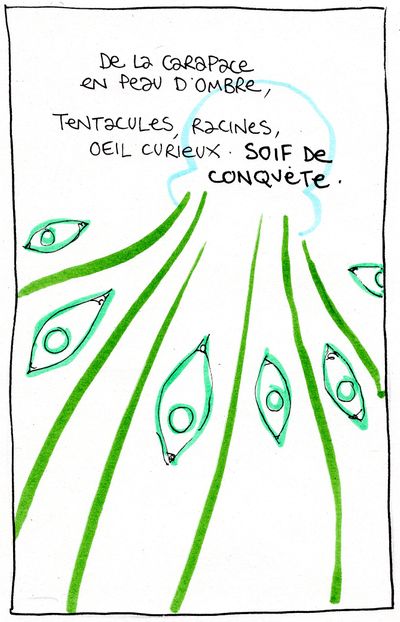 De la carapace
en peau d'ombre,
Tentacules, racines,
oeil curieux. SOIF De
CONQUèTe.